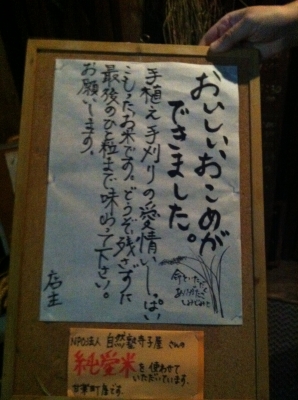 おいしいおこめが
できました。
手植え手刈りの愛情いっぱい
こもったお米です。どうぞ残さずに
最後のひと粒まで味わって下さい。
お願いします。
店主
NPO法人 自然塾寺子屋 さんの
純愛米 を 使わせて
いただいています。
甘楽町産です。